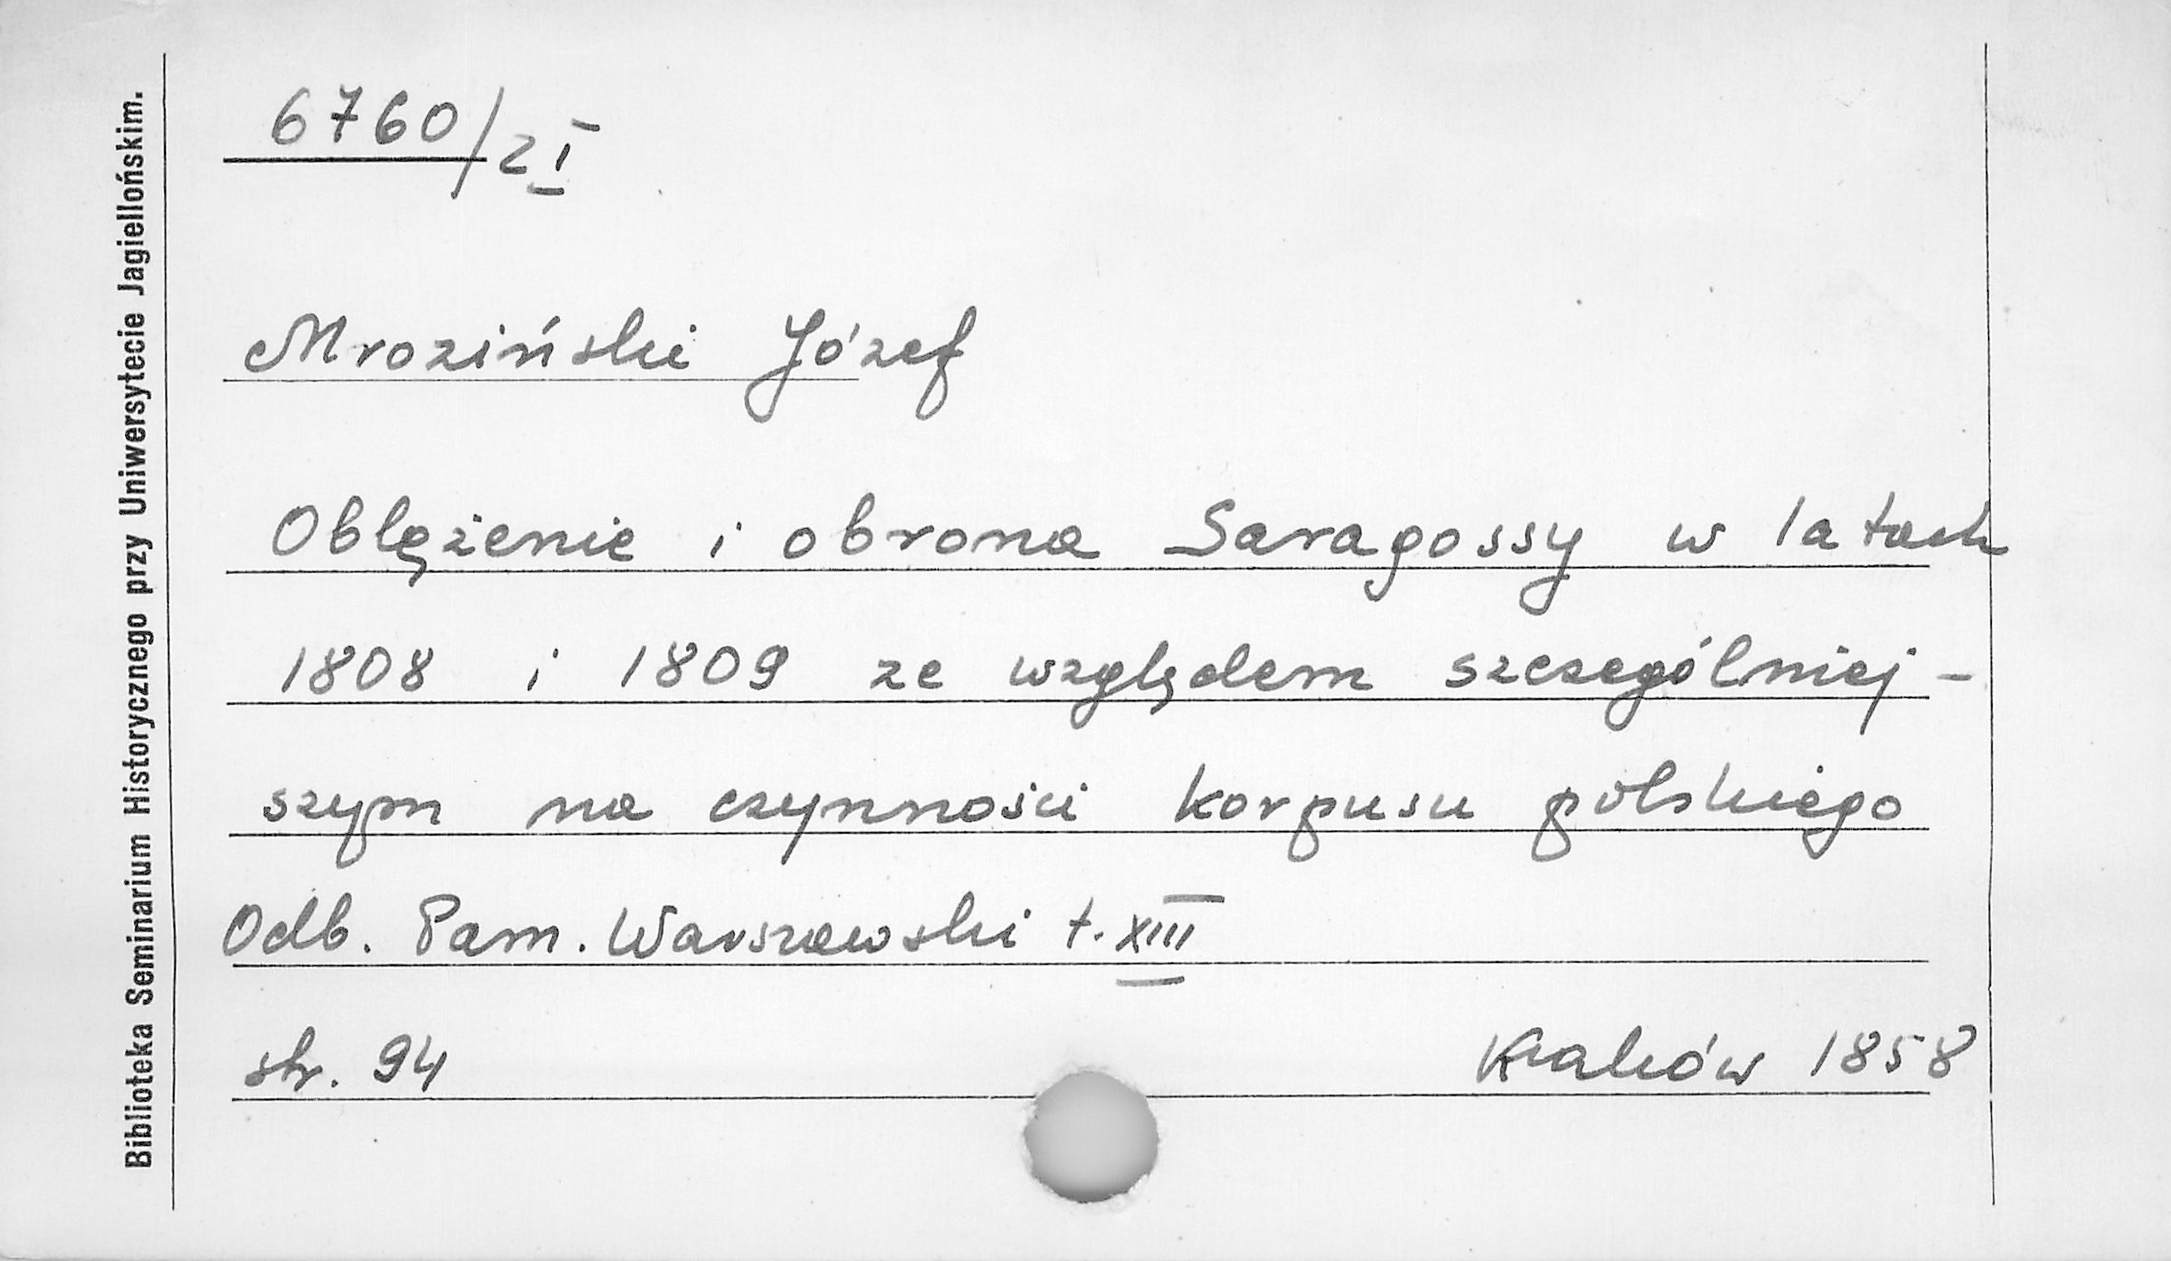 Biblioteka Seminarium Historycznego przy Uniwersytecie Jagiellońskim.
6760/2 I
Mroziński Józef
Oblężenie i obrona Saragossy w latach
1808 i 1809 ze względem szczególniej-
szym na czynności korpusu polskiego
Odb. Pam. Warszawski t. XIII
str. 94 Kraków 1858